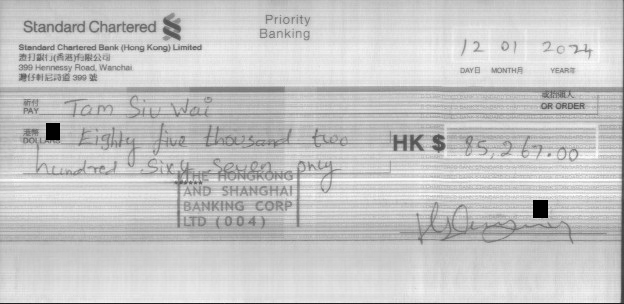 Standard Chartered
Priority
Banking
Standard Chartered Bank (Hong Kong) Limited
渣打銀行(香港)有限公司
399 Hennessy Road, Wanchai
灣仔軒尼詩道 399 號
12 01 2024
DAY日 MONTH月 YEAR年
祈付
PAY Tam Siu Wai
或指領人
OR ORDER
港幣
DOLLARS Eighty five thousand two
hundred Sixty Seven only
HK $ 85,267.00
THE HONGKONG
AND SHANGHAI
BANKING CORP
LTD (004)